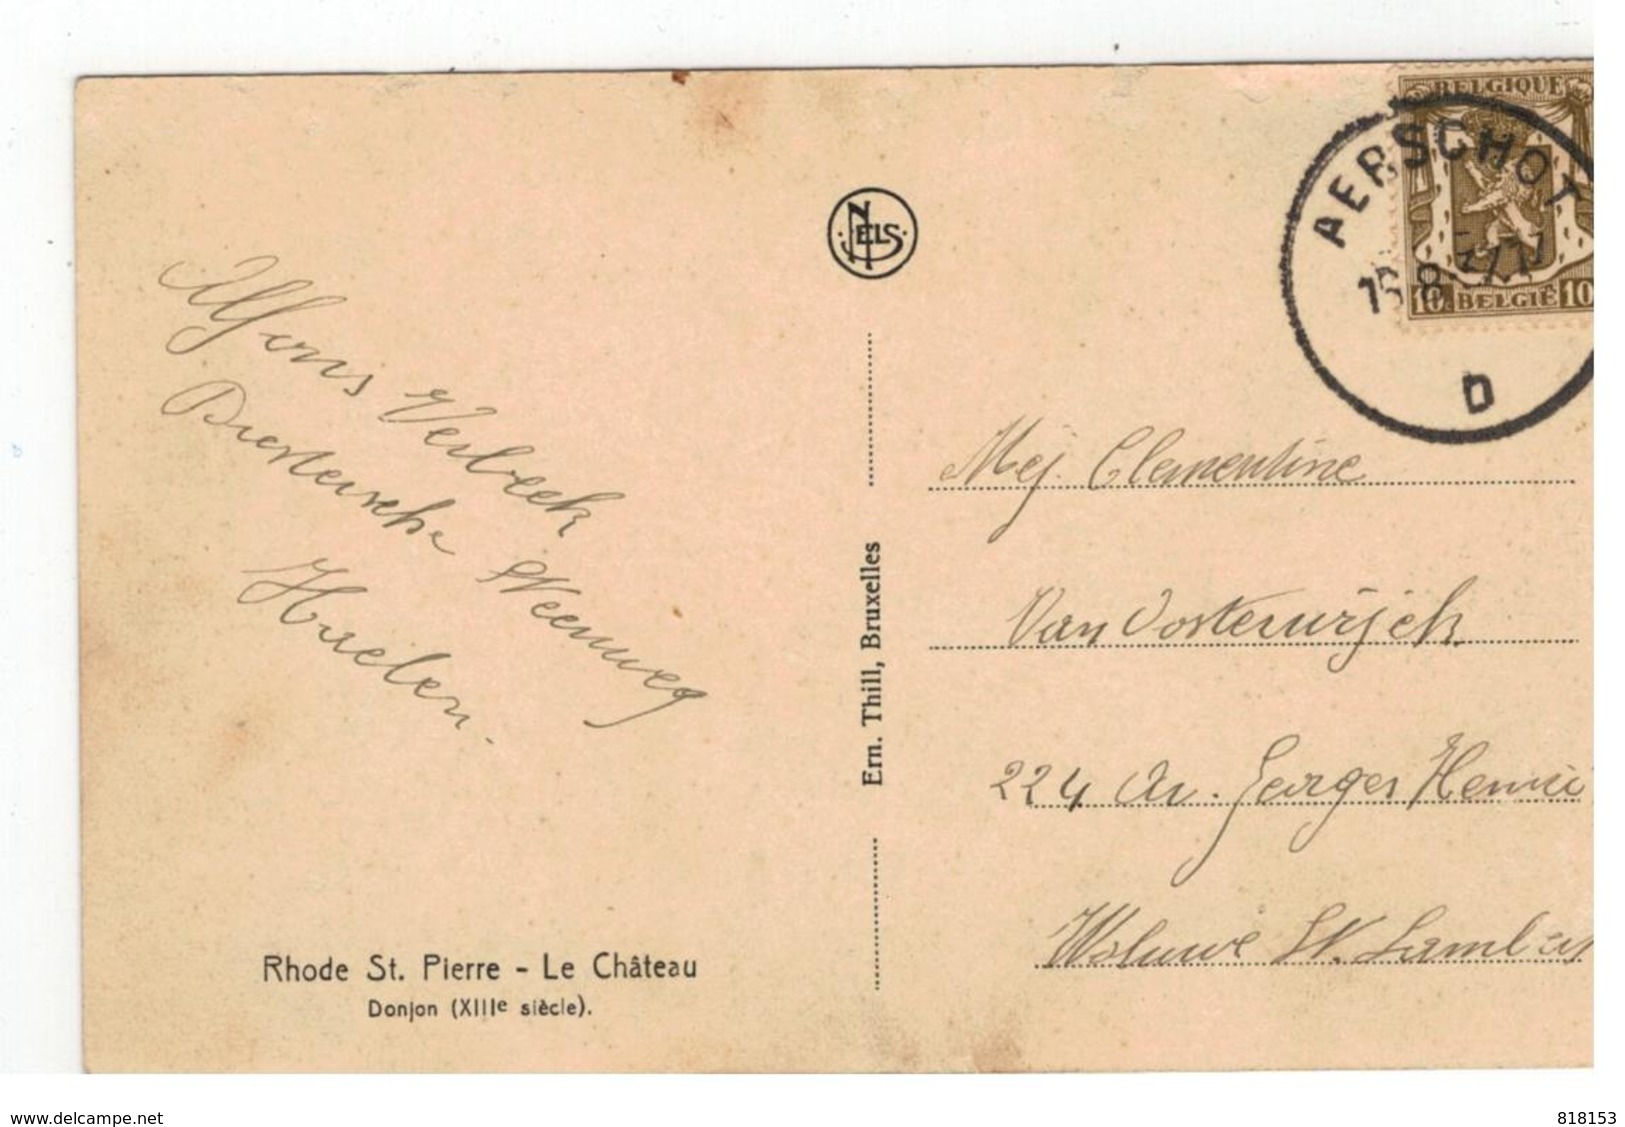 BELGIQUE
AERSCHOT
10c BELGIË 10
D
NELS
Alfons Verbeek
Diestersche Steenweg
Haelen.
Mej. Clementine
Van Oosterwijck
224 Av. Georges Henri
Woluwe St. Lamber
Ern. Thill, Bruxelles
Rhode St. Pierre - Le Château
Donjon (XIIIe siècle).
www.delcampe.net
818153